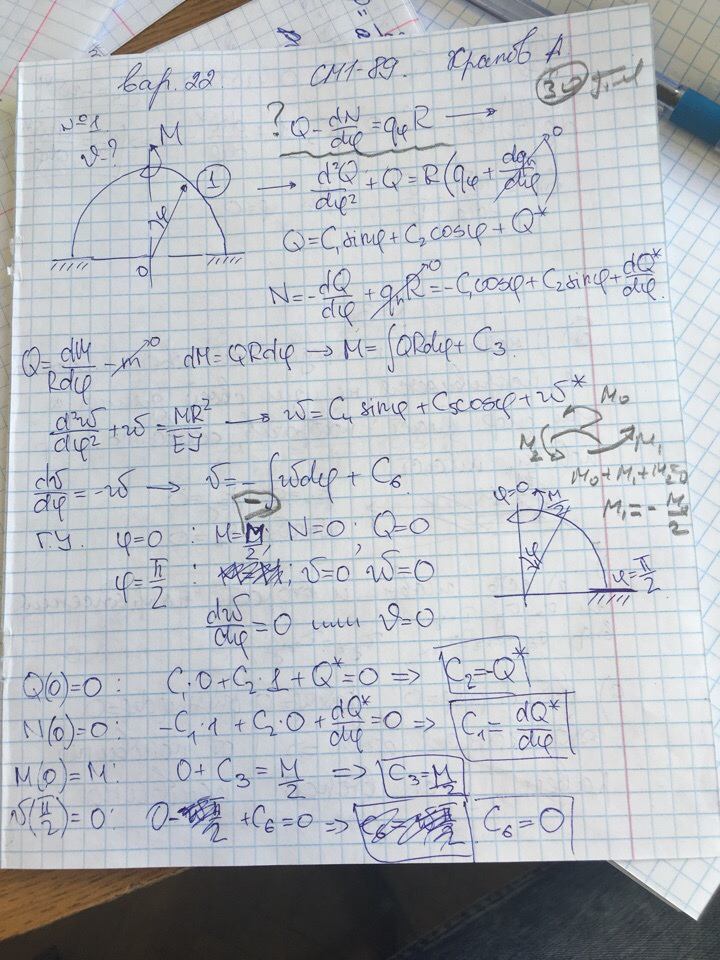 вар. 22. СМ1-89. Храпов А
№1.
ϑ-?
M
1
φ
0
? Q - dN/dφ = qφ R →
→ d²Q/dφ² + Q = R(qφ + dqn/dφ) 0
Q = C₁ sinφ + C₂ cosφ + Q*
N = -dQ/dφ + qn R 0 = -C₁ cosφ + C₂ sinφ + dQ*/dφ.
Q = dM/Rdφ - m 0 dM = QRdφ → M = ∫QRdφ + C₃.
d²w/dφ² + w = MR²/EJ → w = C₄ sinφ + C₅ cosφ + w*
dv/dφ = -w → v = -∫wdφ + C₆
M₀
M₂ M₁
M₀ + M₁ + M₂ = 0
M₁ = - M₀/2
Г.У. φ=0 : M = - M/2; N=0; Q=0
φ = π/2 : ; v=0 w=0
dw/dφ = 0 или ϑ=0
φ=0 M/2
φ
φ = π/2
Q(0)=0 : C₁·0 + C₂·1 + Q* = 0 => C₂ = -Q*
N(0)=0 : -C₁·1 + C₂·0 + dQ*/dφ = 0 => C₁ = dQ*/dφ
M(0)=M : 0 + C₃ = M/2 => C₃ = M/2
v(π/2)=0 : 0 - + C₆ = 0 => C₆ = 0